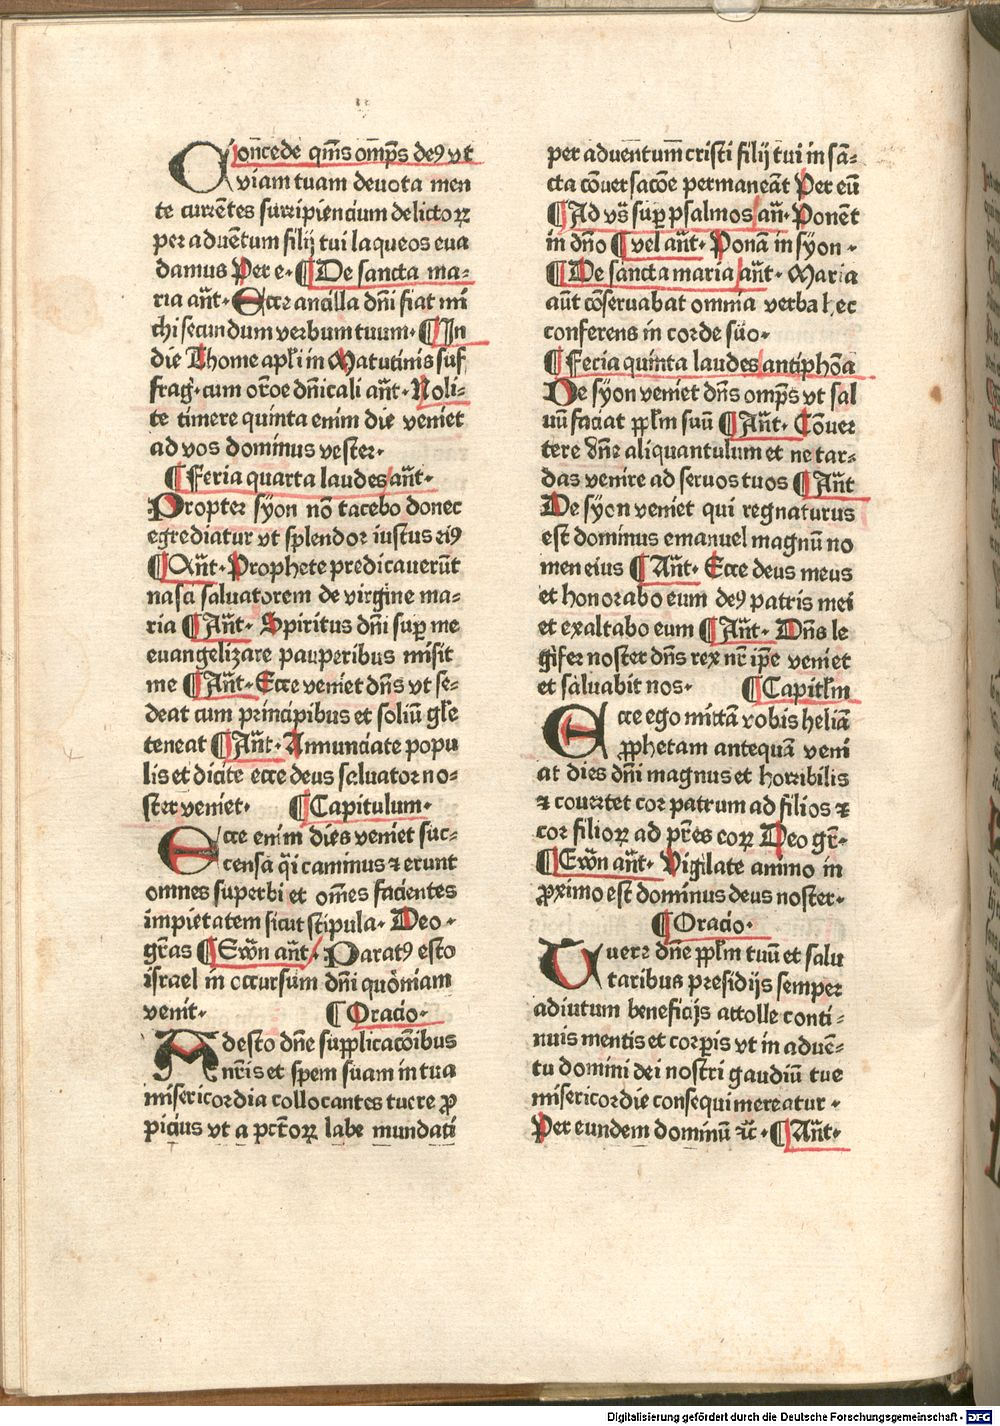 Concede qm̄s omp̄s deꝰ vt
viam tuam deuota men
te curre̅tes surripiencium delictoꝝ
per aduentum filij tui laqueos eua
damus Per e· ¶De sancta ma⸗
ria an̄t· Ecce ancilla dn̄i fiat mi
chi secundum verbum tuum· ¶In
die Thome apl̄i in Matutinis suf
frag· cum or̄oe dn̄icali an̄t· Noli⸗
te timere quinta enim die veniet
ad vos dominus vester·
¶Feria quarta laudes/ an̄t·
Propter syon nō tacebo donec
egrediatur vt splendor iustus eiꝰ
¶An̄t· Prophete predicauerūt
nasci saluatorem de virgine ma⸗
ria ¶An̄t· Spiritus dn̄i suꝑ me
euangelizare pauperibus misit
me ¶An̄t· Ecce veniet dn̄s vt se⸗
deat cum principibus et soliū gl̄e
teneat ¶An̄t· Annunciate popu
lis et dicite ecce deus saluator no⸗
ster veniet· ¶Capitulum·
Ecce enim dies veniet suc⸗
censa q̄i caminus ⁊ erunt
omnes superbi et om̄es facientes
impietatem sicut stipula· Deo·
gr̄as ¶Ewn̄ an̄t/· Paratꝰ esto
israel in occursum dn̄i quoniam
venit· ¶Oracio·
Adesto dn̄e supplicacōibus
nr̄is et spem suam in tua
misericordia collocantes tuere ꝓ
picius vt a pctōꝝ labe mundati
per aduentum cristi filij tui in san̄⸗
cta cōuersacōe permaneāt Per eū
¶Ad vs̄ suꝑ psalmos/ an̄· Ponēt
in dn̄o ¶vel an̄t· Ponā in syon·
¶De sancta maria/ an̄t· Maria
aūt cōseruabat omnia verba hec
conferens in corde suo·
¶Feria quinta laudes/ antiphōa
De syon veniet dn̄s omp̄s vt sal
uū faciat ppl̄m suū ¶An̄t· Cōuer
tere dn̄e aliquantulum et ne tar⸗
das venire ad seruos tuos ¶An̄t
De syon veniet qui regnaturus
est dominus emanuel magnū no
men eius ¶An̄t· Ecce deus meus
et honorabo eum deꝰ patris mei
et exaltabo eum ¶An̄t· Dn̄s le
gifer noster dn̄s rex nr̄ ip̄e veniet
et saluabit nos· ¶Capitl̄m
Ecce ego mittā vobis heliā
ꝓphetam antequā veni
at dies dn̄i magnus et horribilis
⁊ couertet cor patrum ad filios ⁊
cor filioꝝ ad pr̄es eoꝝ Deo gr̄·
¶Ewn̄ an̄t· Vigilate animo in
ꝓximo est dominus deus noster·
¶Oracio·
Tuere dn̄e ppl̄m tuū et salu
taribus presidijs semper
adiutum beneficijs attolle conti⸗
nuis mentis et corꝑis vt in aduē⸗
tu domini dei nostri gaudiū tue
misericordie consequi mereatur·
Per eundem dominū ⁊c̄· ¶An̄t·
Digitalisierung gefördert durch die Deutsche Forschungsgemeinschaft - DFG